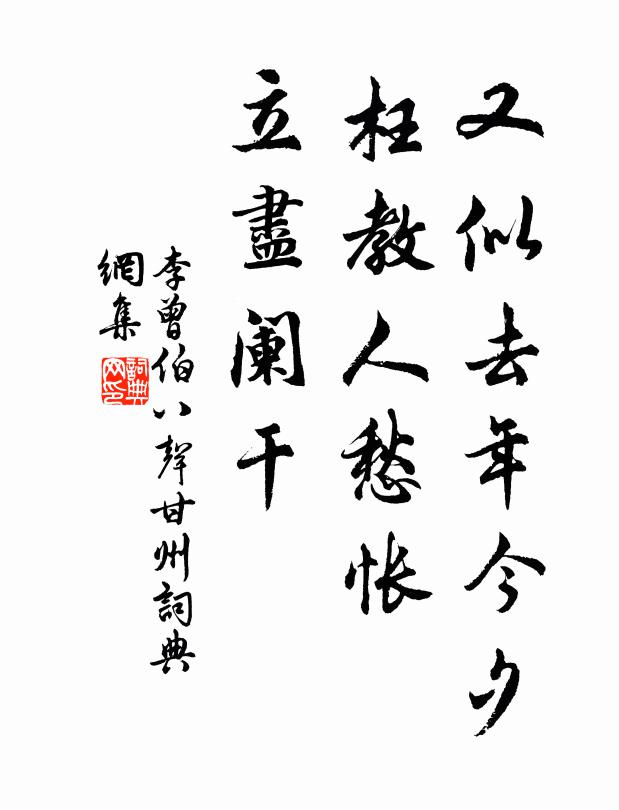 又似去年今夕
枉教人愁怅
立盡阑干
李曾伯八聲甘州詞典
網集
詞典
网印